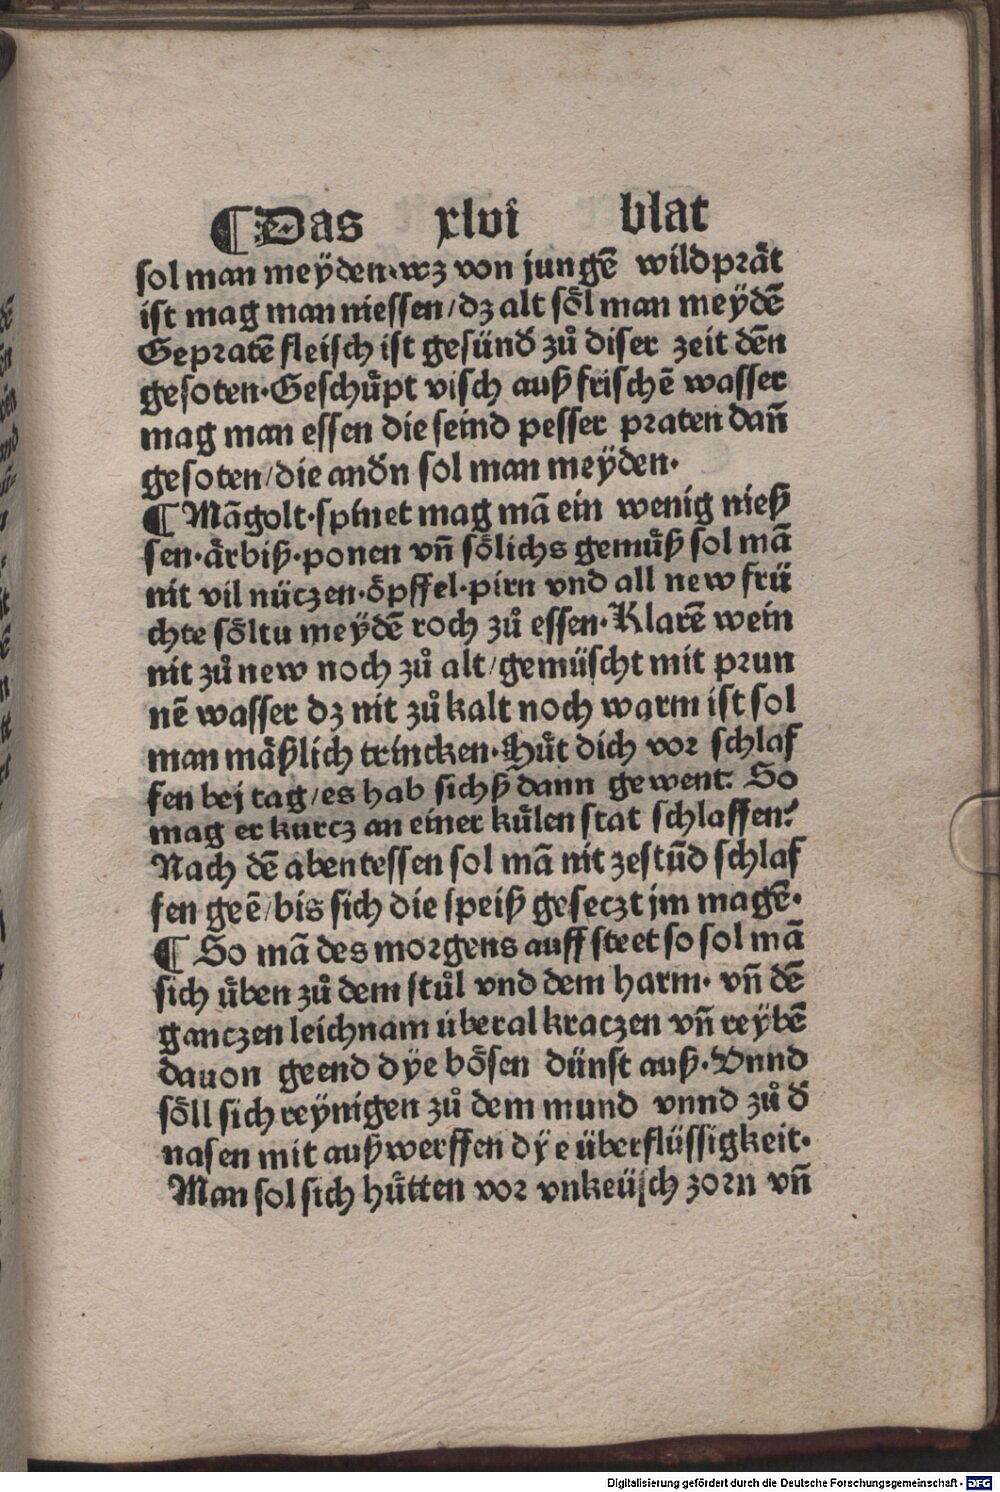 ¶Das xlvi blat
sol man meÿden·wz von jungē wildprät
ist mag man niessen/dz alt söl man meÿdē
Gepratē fleisch ist gesünd' zů diser zeit dēn
gesoten·Geschuͤpt visch auß frischē wasser
mag man essen die seind pesser praten dan̄
gesoten/die and'n sol man meÿden·
¶Māgolt·spinet mag mā ein wenig nieß
sen·ärbiß·ponen vn̄ soͤlichs gemuͤß sol mā
nit vil nüczen·öpffel·pirn vnd all new frü
chte söltu meÿdē roch zů essen·Klarē wein
nit zů new noch zů alt/gemüscht mit prun
nē wasser dz nit zů kalt noch warm ist sol
man mäßlich trincken·Huͤt dich vor schlaf
fen bej tag/es hab sichß dann gewent: So
mag er kurcz an einer kuͤlen stat schlaffen:
Nach dē abentessen sol mā nit zestūd schlaf
fen geē/bis sich die speiß geseczt jm magē·
¶So mā des morgens auff steet so sol mā
sich uͤben zů dem stůl vnd dem harm· vn̄ dē
ganczen leichnam überal kraczen vn̄ reÿbē
dauon geend dÿe bösen dünst auß·Vnnd
söll sich reÿnigen zů dem mund vnnd zů d'
nasen mit außwerffen dÿe überflüssigkeit·
Man sol sich huͤtten vor vnkeüsch zorn vn̄
Digitalisierung gefördert durch die Deutsche Forschungsgemeinschaft - DFG